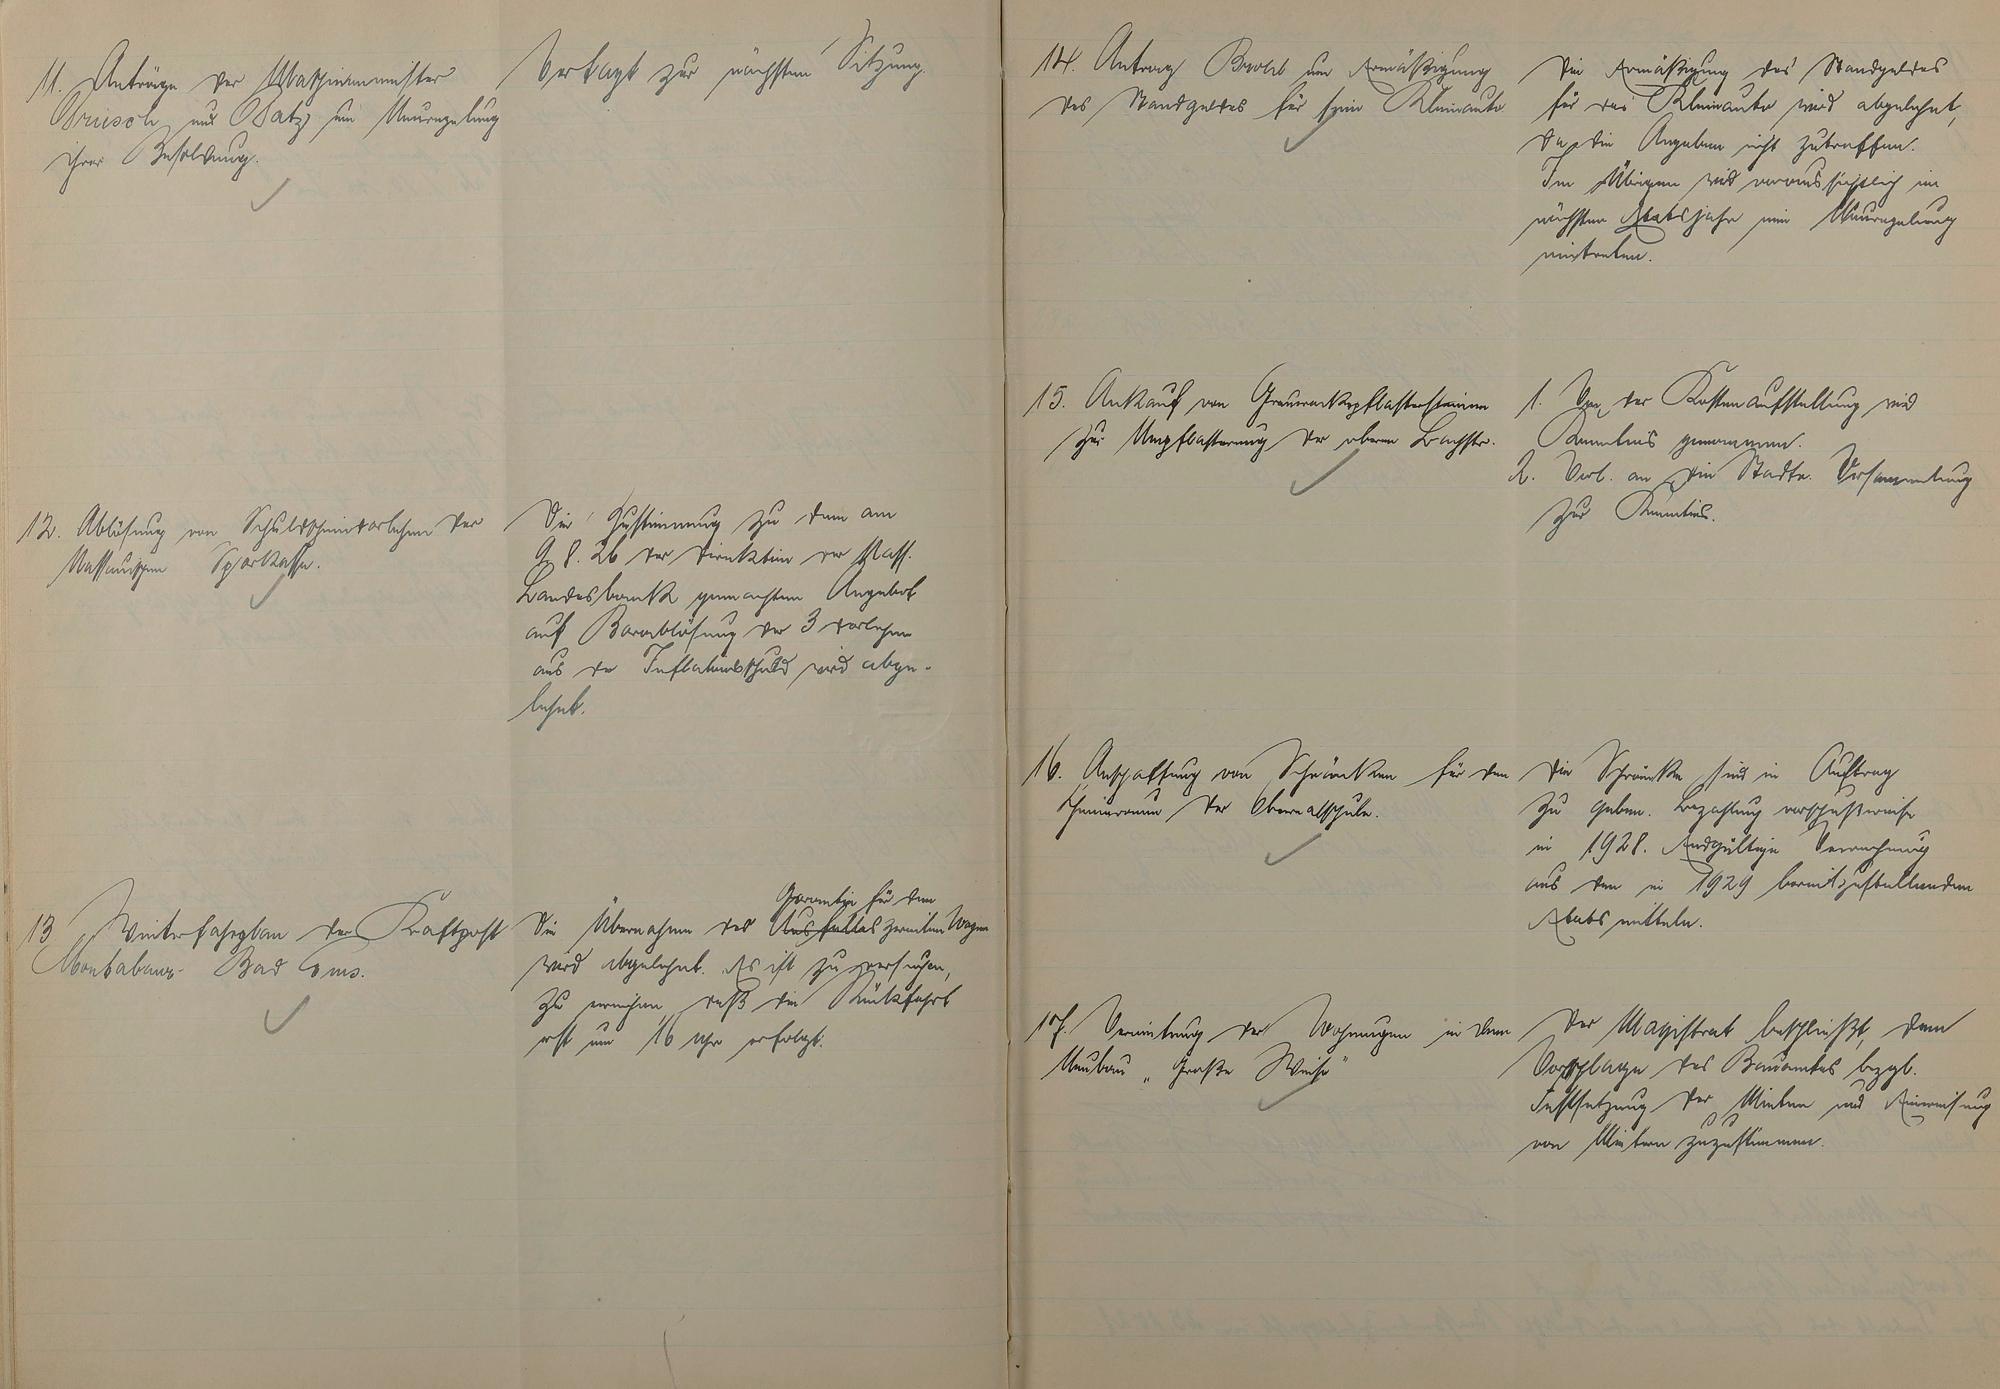 11. Anträge der Maschinenmeister
Briesch und Satz um Neuregelung
ihrer Besoldung.
Vertagt zur nächsten Sitzung.
12. Ablösung von Schuldscheindarlehen der
Nassauischen Sparkasse.
Die Zustimmung zu dem am
9.8.26 der Direktion der Nass.
Landesbank gemachten Angebot
auf Barablösung der 3 Darlehen
aus der Inflationsschuld wird abge-
lehnt.
13 Winterfahrplan der Kraftpost
Montabaur- Bad Ems.
Garantie für den
Die Übernahme des Ausfalles zweiten Wagen
wird abgelehnt. Es ist zu versuchen,
zu erreichen, daß die Rückfahrt
erst um 16 Uhr erfolgt.
14. Antrag um Ermäßigung
des Standgeldes für sein Kleinauto
Die Ermäßigung des Standgeldes
für das Kleinauto wird abgelehnt,
da die Angaben nicht zutreffen.
Im Übrigen wird voraussichtlich im
nächsten Etatsjahr eine Neuregelung
eintreten.
15. Ankauf von Grauwackepflastersteinen
zur Umpflasterung der oberen Bachstr.
1. Von der Kostenaufstellung wird
Kenntnis genommen.
2. Vorl. an die Stadtv. Versammlung
zur Kenntnis.
16. Anschaffung von Schränken für den
Chemieraum der Oberrealschule.
Die Schränke sind in Auftrag
zu geben. Bezahlung vorschußweise
in 1928. Endgültige Verrechnung
aus den in 1929 bereitzustellenden
Etatsmitteln.
17. Vermietung der Wohnungen in dem
Neubau „Große Weise"
Der Magistrat beschließt, dem
Vorschlage des Bauamtes bezgl.
Festsetzung der Mieten und Einweisung
von Mietern zuzustimmen.